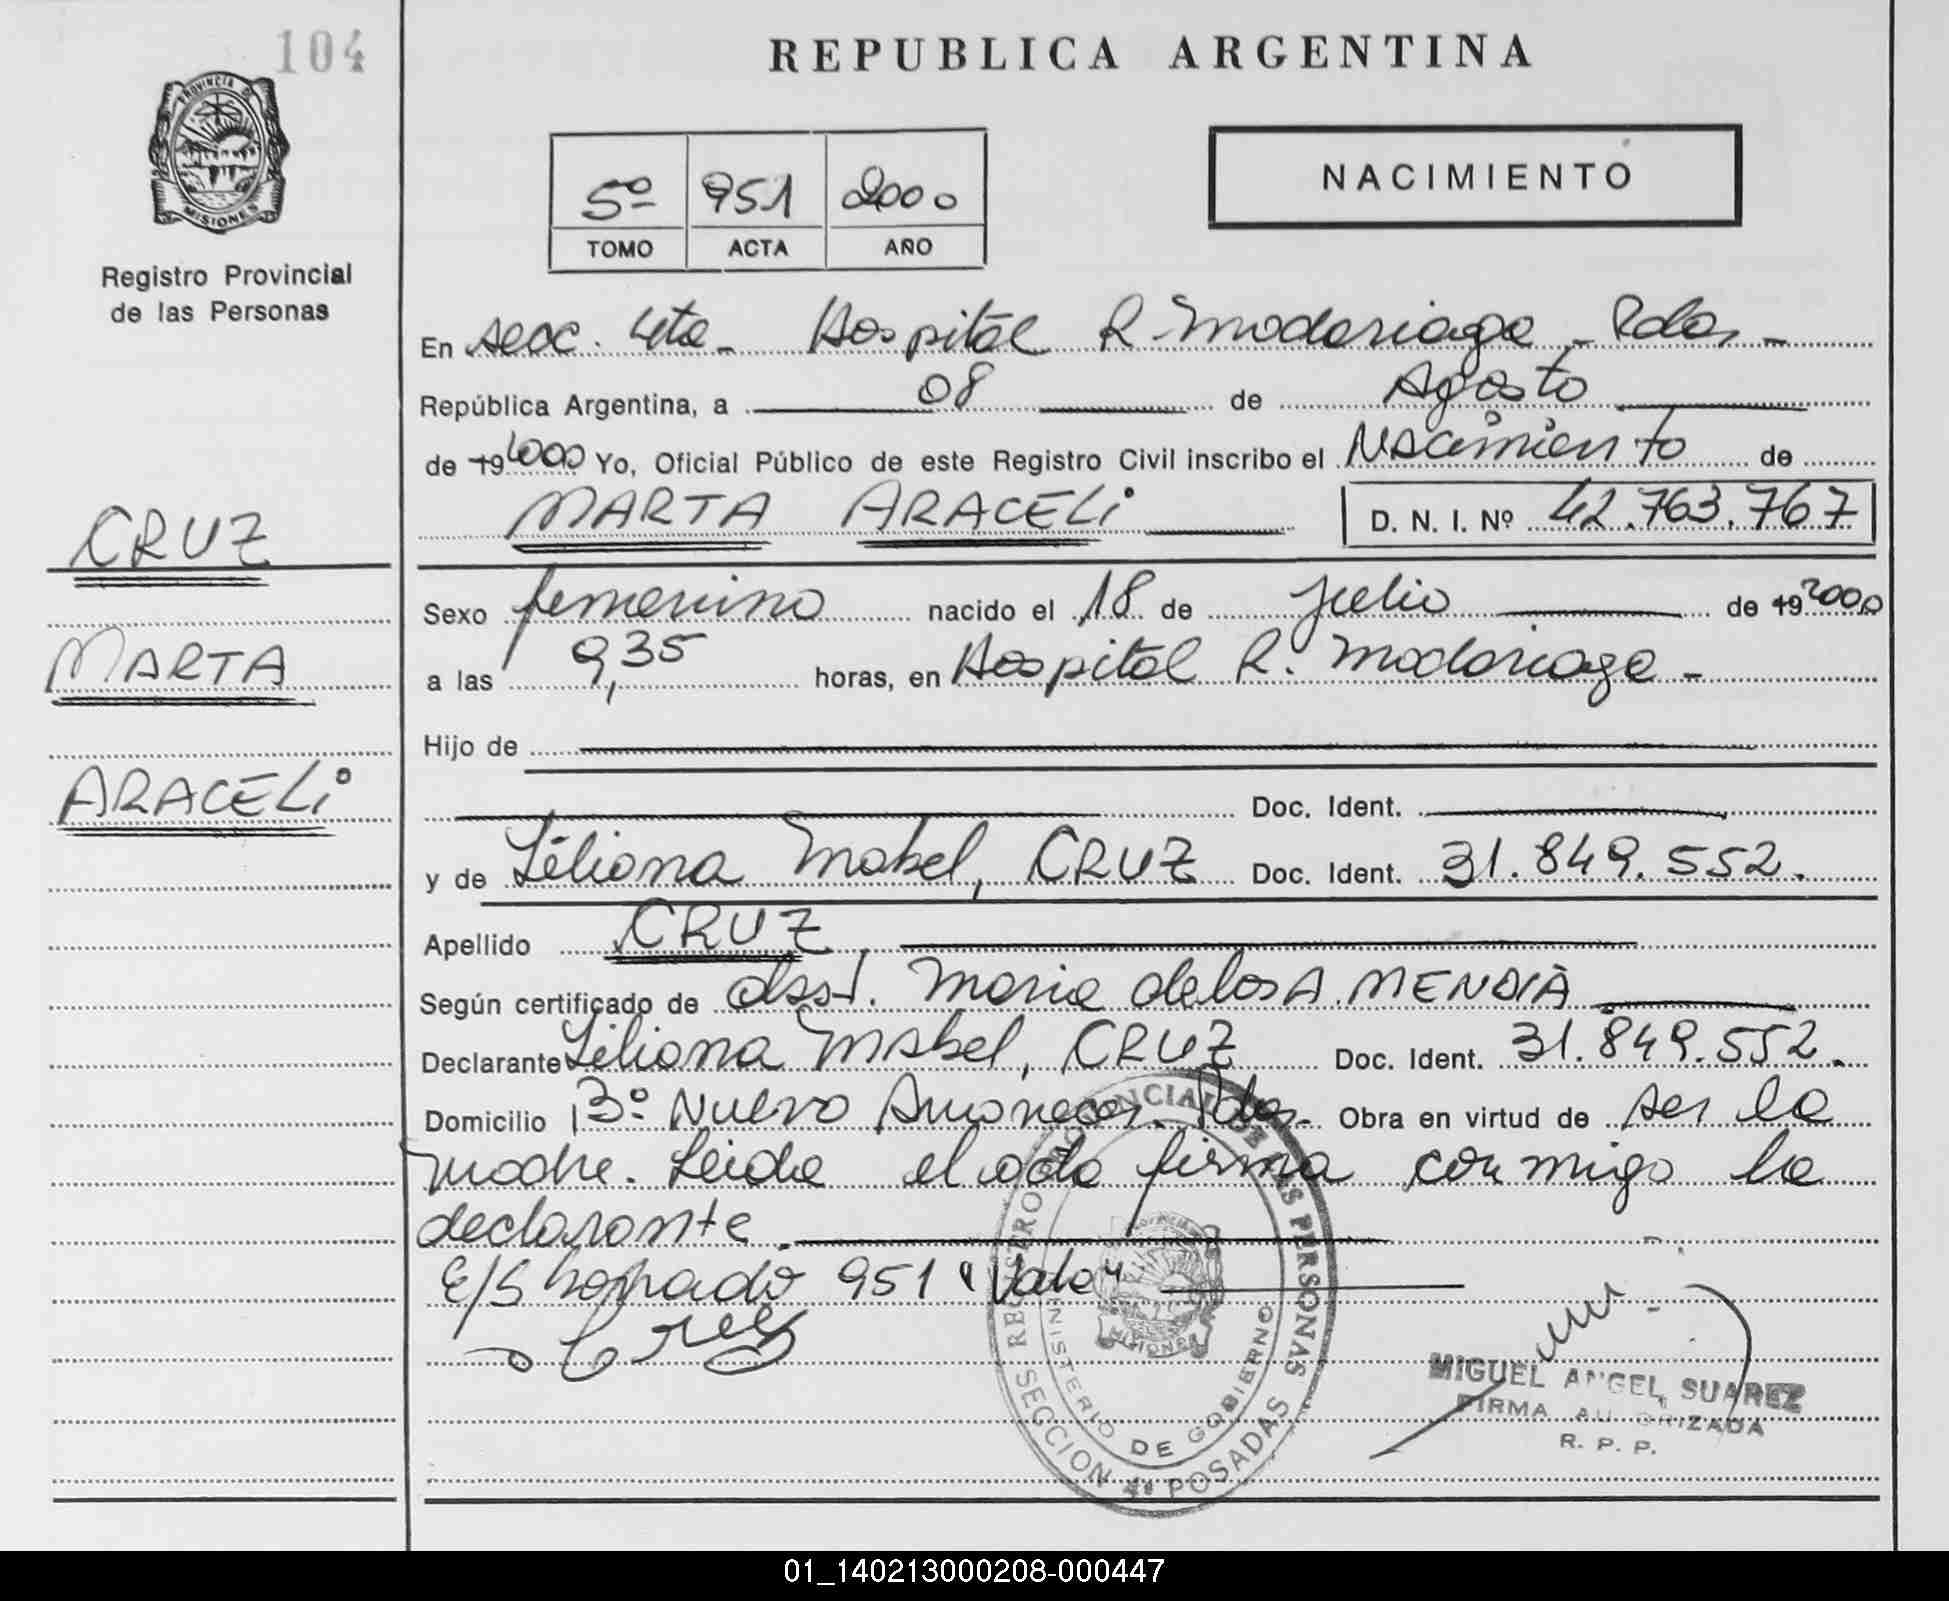 104
PROVINCIA DE
MISIONES
Registro Provincial
de las Personas
CRUZ
MARTA
ARACELi
REPUBLICA ARGENTINA
5º 951 2000
TOMO ACTA AÑO
NACIMIENTO
En secc. 4ta - Hospital R. Madariaga - Pdas -
República Argentina, a 08 de Agosto
de 19 2000 Yo, Oficial Público de este Registro Civil inscribo el Nacimiento de
MARTA ARACELi D. N. I. Nº 42.763.767
Sexo femenino nacido el 18 de Julio de 19 2000
a las 9,35 horas, en Hospital R. Madariaga -
Hijo de
Doc. Ident.
y de Liliana Mabel, CRUZ Doc. Ident. 31.849.552.
Apellido CRUZ
Según certificado de Obst. Maria de los A. MENDIA
Declarante Liliana Mabel, CRUZ Doc. Ident. 31.849.552.
Domicilio Bº Nuevo Amanecer. Pdas. Obra en virtud de ser la
madre. Leida el acta firma conmigo la
declarante.
E/S borrado 951 "Vale"
Cruz
REGISTRO PROVINCIAL DE LAS PERSONAS
MINISTERIO DE GOBIERNO
MISIONES
SECCION 4ª POSADAS
MIGUEL ANGEL SUAREZ
FIRMA AUTORIZADA
R. P. P.
01_140213000208-000447